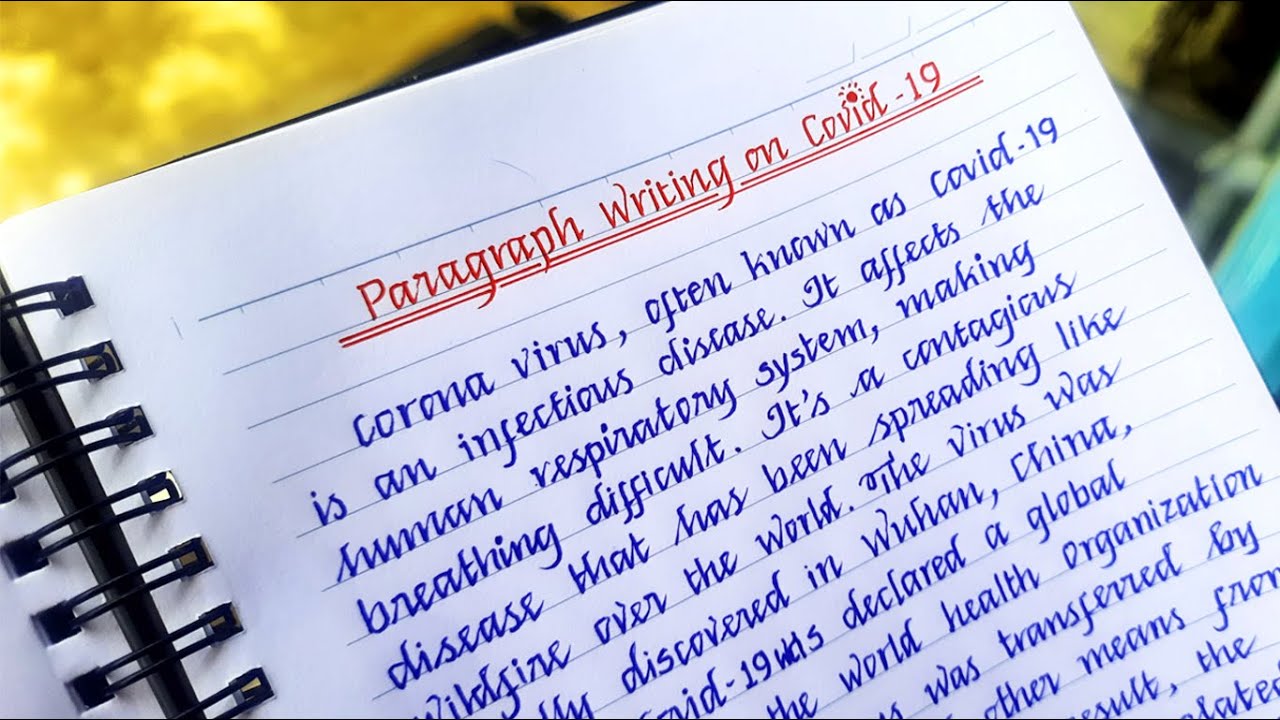 Paragraph Writing on Covid-19
Corona virus, often known as covid-19
is an infectious disease. It affects the
human respiratory system, making
breathing difficult. It's a contagious
disease that has been spreading like
Wildfire over the world. The virus was
discovered in Wuhan, China,
Covid-19 was declared a global
the world health organization
was transferred by
other means from
result, the